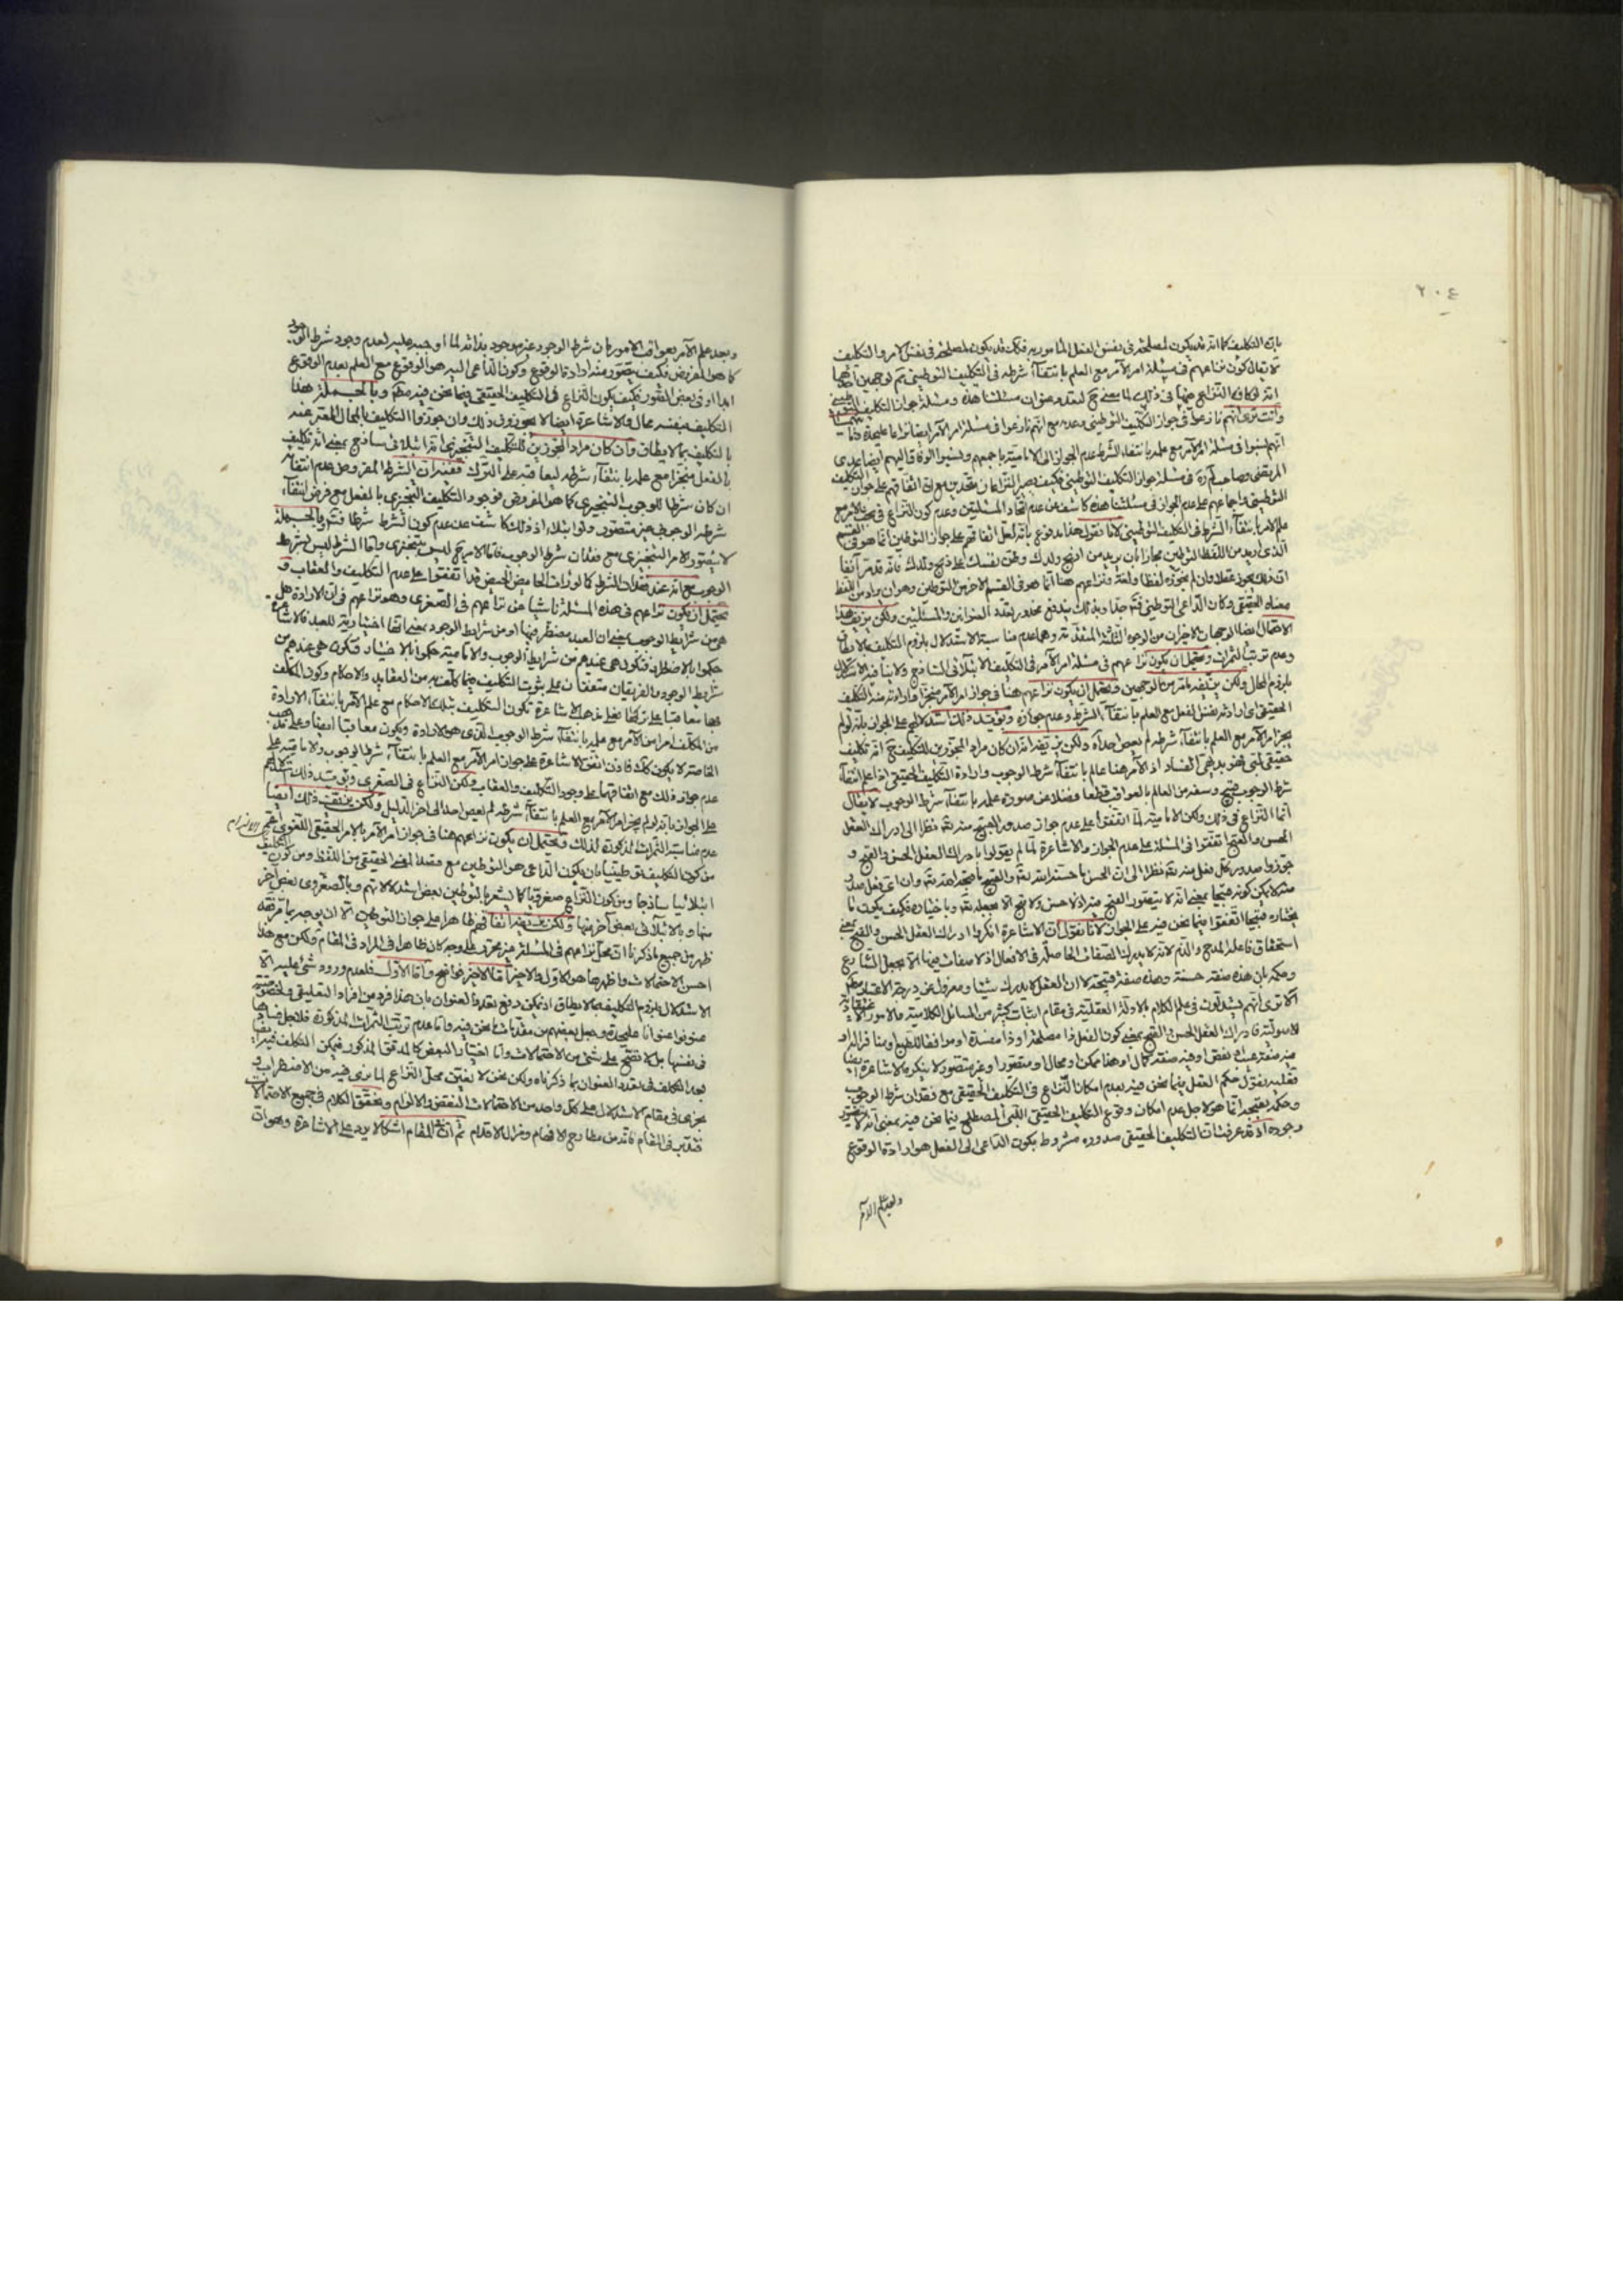 ٢٠٤
بان التكليف كما انه قد يكون لمصلحة فى نفس الفعل المأمور به فكك قد يكون لمصلحة فى نفس الامر والتكليف
لا يقال كون نزاعهم فى مسئلة امر الآمر مع العلم بانتفاء شرطه فى التكليف التوطينى لوجهين احدهما
انه لو كان النزاع فى ذلك لما معنى ح لتعدد عنوان مسئلتنا هذه ومسئلة جواز التكليف التوطينى
وانت ترى انهم نازعوا فى جواز التكليف التوطينى وعدمه مع انهم نازعوا فى مسئلة امر الآمر ايضا
انهم نسبوا فى مسئلة امر الآمر مع علمه بانتفاء الشرط عدم الجواز الى الامامية باجمعهم ونسبوا الوفاق اليهم ايضا
المرتضى وصاحب لم ره فى مسئلة جواز التكليف التوطينى فكيف يصير النزاعان متحدين مع ان اتفاقهم على جواز التكليف
التوطينى واجماعهم على عدم الجواز فى مسئلتنا هذه كاشف عن عدم اتحاد المسئلتين وعدم كون النزاع فى
علم الآمر بانتفاء الشرط فى التكليف التوطينى لانا نقول هذا مدفوع بانه لعل اتفاقهم على جواز التوطين انما هو فى القسم
الذى اريد من اللفظ التوطين مجازا بان يريد من اذبح ولدك وطن نفسك على ذبح ولدك فانه قد مر آنفا
ان ذلك يجوز عقلا وان لم يجوزه لفظا ولغة ونزاعهم هنا انما هو فى القسم الاخر من التوطين وهو ان يراد من اللفظ
معناه الحقيقى وكان الداعى التوطين فتدبر جدا وبذلك يندفع محذور تعدد العنوانين والمسئلتين ولكن يزيف هذا
الاحتمال ايضا الوجهان الاخيران من الوجوه الثلثة المتقدمة وهما عدم مناسبة الاستدلال بلزوم التكليف بما لا يطاق
وعدم ترتب الثمرات ويحتمل ان يكون نزاعهم فى مسئلة امر الآمر فى التكليف الابتلائى الساذج ولا ينافيه الاستدلال
بلزوم المحال ولكن يزيفه ما مر من الوجهين ويحتمل ان يكون نزاعهم هنا فى جواز امر الآمر منجزا مع ارادته منه التكليف
الحقيقى اى ارادته نفس الفعل مع العلم بانتفاء الشرط وعدم جوازه ويؤيد ذلك استدلالهم على الجواز بانه لو لم
يجز امر الآمر مع العلم بانتفاء شرطه لم يعص احد اه ولكن يزيفه انه ان كان مراد المجوزين للتكليف ح انه تكليف
حقيقى لبى فهو بديهى الفساد اذ الآمر هنا عالم بانتفاء شرط الوجوب وارادة التكليف الحقيقى اذا علم انتفاء
شرط الوجوب قبيح وسفه من العالم بالعواقب قطعا فضلا عن صدوره علمه بانتفاء شرط الوجوب لا يقال
انما النزاع فى ذلك ولكن الامامية لما اتفقوا على عدم جواز صدور القبيح منه تعالى نظرا الى ادراك العقل
الحسن والقبح اتفقوا فى المسئلة على عدم الجواز والاشاعرة لما لم يقولوا بادراك العقل الحسن والقبح و
جوزوا صدور كل فعل منه تعالى نظرا الى ان الحسن ما حسنه الله تعالى والقبيح ما قبحه الله تعالى وان اى فعل صدر
منه لا يكون قبيحا بمعنى انه لا يتصور القبح منه اذ لا حسن ولا قبح الا بجعله تعالى وباختياره فكيف يكون ما
يختاره قبيحا اتفقوا فيما نحن فيه على الجواز لانا نقول ان الاشاعرة انكروا ادراك العقل الحسن والقبح بمعنى
استحقاق فاعله المدح والذم لانه لا يدرك الصفات الحاصلة فى الافعال اذ لا صفات فيها الا بجعل الشارع
وحكمه بان هذه صفة حسنة وهذه صفة قبيحة لا ان العقل لا يدرك شيئا ومعزول عن درجة الاعتبار
الا ترى انهم يستدلون فى علم الكلام بالادلة العقلية فى مقام اثبات كثير من المسائل الكلامية والامور
الاصولية فادراك العقل الحسن والقبح بمعنى كون الفعل ذا مصلحة او ذا مفسدة او موافقا للطبع او منافرا له او
فيه صفة نقص او فيه صفة كمال او هذا ممكن او محال او متصور او غير متصور لا ينكره الاشاعرة ايضا
فعليه نقول حكم العقل فيما نحن فيه بعدم امكان النزاع فى التكليف الحقيقى مع فقدان شرط الوجوب
وحكمه بقبحه انما هو لاجل عدم امكان وقوع التكليف الحقيقى اللبى المصطلح فيما نحن فيه بمعنى انه لا يتصور
وجوده اذ قد عرفت ان التكليف الحقيقى صدوره مشروط بكون الداعى الى الفعل هو ارادة الوقوع
وبعد علم الآمر
وبعد علم الآمر بعواقب الامور بان شرط الوجود غير موجود بذاته لما اوجبه عليه لعدم وجود شرط الوجوب
كما هو المفروض فكيف يتصور منه ارادة الوقوع وكون الداعى اليه هو الوقوع مع العلم بعدم الوقوع
ابدا او فى بعض الصور فكيف يكون النزاع فى التكليف الحقيقى فيما نحن فيه وبالجملة هذا
التكليف بنفسه محال والاشاعرة ايضا لا يجوزون ذلك وان جوزوا التكليف بالمحال المعتبر عنه
بالتكليف بما لا يطاق وان كان مراد المجوزين للتكليف التنجيزى انه ابتلائى ساذج بمعنى انه تكليف
بالفعل منجزا مع علمه بانتفاء شرطه ليعاقبه على الترك ففيه ان الشرط المفروض عدم انتفاء
ان كان شرطا للوجوب التنجيزى كما هو المفروض فوجود التكليف التنجيزى بالفعل مع فرض انتفاء
شرطه الوجوبى غير متصور ولو ابتلاء اذ ذلك كاشف عن عدم كون الشرط شرطا فتدبر وبالجملة
لا يتصور الامر التنجيزى مع فقدان شرط الوجوب فاما الامر ح ليس بتنجيزى واما الشرط ليس بشرط
الوجوب مع انه عند فقدان الشرط كما لو رأت الحايض الحيض غدا اتفقوا على عدم التكليف والعقاب و
يحتمل ان يكون نزاعهم فى هذه المسئلة ناشيا عن نزاعهم فى الصغرى وهو نزاعهم فى ان الارادة هل
هى من شرايط الوجوب بمعنى ان العبد مضطر فيها او من شرايط الوجود بمعنى انها اختيارية للعبد فالاشاعرة
حكموا بالاضطرار فتكون هى عندهم من شرايط الوجوب والامامية حكموا بالاختيار فتكون هى عندهم من
شرايط الوجود والفريقان متفقان على ثبوت التكليف فيما كلف به من العقايد والاحكام وكون المكلف
فيها معاقبا على تركها فعلى مذهب الاشاعرة تكون التكليف بتلك الاحكام مع علم الآمر بانتفاء الارادة
من المكلف امرا من الآمر مع علمه بانتفاء شرط الوجوب الذى هو الارادة ويكون معاقبا ايضا وعلى مذهب
القاصر لا يكون كك فاذن اتفق الاشاعرة على جواز امر الآمر مع العلم بانتفاء شرط الوجوب والامامية على
عدم جوازه ذلك مع اتفاقهما على وجود التكليف والعقاب ولكن النزاع فى الصغرى ويؤيد ذلك استدلالهم
على الجواز بانه لو لم يجز امر الآمر مع العلم بانتفاء شرطه لم يعص احد الى اخر الدليل ولكن يزيف ذلك ايضا
عدم مناسبة الثمرات المذكورة لذلك ويحتمل ان يكون نزاعهم هنا فى جواز امر الآمر بالامر الحقيقى اللغوى اعم
من كون التكليف توطينيا بان يكون الداعى هو التوطين مع قصد المعنى الحقيقى من اللفظ ومن كون التكليف
ابتلائيا ساذجا ومن كون النزاع صغرويا كما يشعر بالتوطين بعض استدلالاتهم وبالصغروى بعض آخر
منها وبالابتلائى بعض آخر منها ولكن يزيفه اتفاقهم ظاهرا على جواز التوطين الا ان يوجه بما مر فقد
ظهر من جميع ما ذكرنا ان محل نزاعهم فى المسئلة غير محرر على وجه كان ظاهرا فى المراد فى المقام ولكن مع هذا
احسن الاحتمالات واظهرها هو الاول والاخير اما الاخير فواضح واما الاول فلعدم ورود شئ عليه الا
الاستدلال بلزوم التكليف بما لا يطاق اذ يمكن دفع تعدد العنوان بان هذا فرد من افراد التعليقى ولخصوصيته
عنونوا عنوانا عليحدة وجعل بعضهم من مقدمات ما نحن فيه واما عدم ترتب الثمرات المذكورة فلاجل فسادها
فى نفسها بل لا تصح على شئ من الاحتمالات واما اختيار البعض كالمدقق المذكور فيمكن التكلف فيه ايضا
بعد التكلف فى تعدد العنوان بما ذكرناه ولكن نحن لا نعين محل النزاع لما نرى فيه من الاضطراب و
نجرى فى مقام الاستدلال على كل واحد من الاحتمالات النقض والابرام ونحقق الكلام فى جميع الاحتمالات
فتدبر فى المقام فانه من مطارح الافهام ومزال الاقدام ثم ان فى المقام اشكالا يرد على الاشاعرة وهو ان